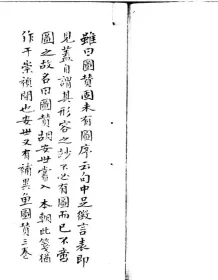 雖曰圖賛固未有圖序云句中足徵言表即
見蓋自謂其形容之妙不必有圖而已不啻
圖之故名曰圖賛胡安世嘗入本朝此箋猶
作于崇禎間也安世又有補異魚圖賛三卷